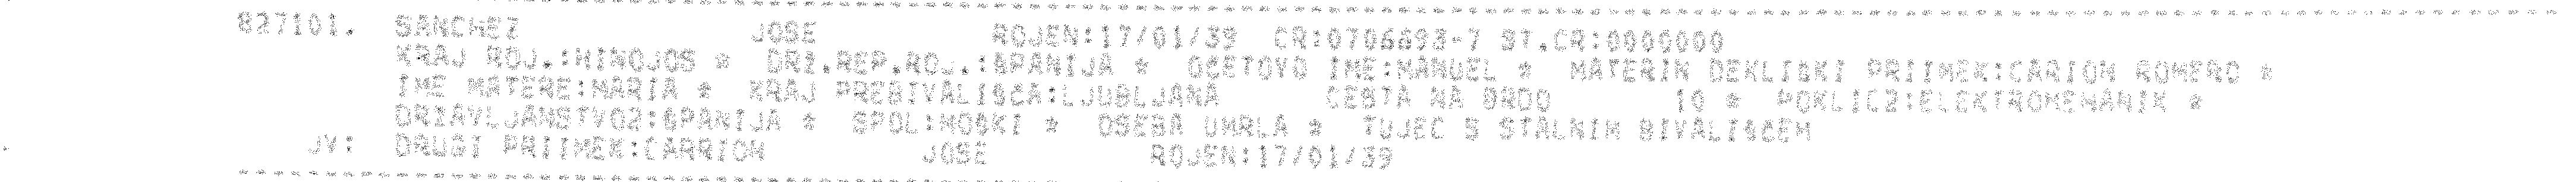 827101. SANCHEZ JOSE ROJEN:17/01/39 CR:0706693-7 ST.CR:0000000
KRAJ ROJ.:HINOJOS * DRZ.REP.ROJ.:SPANIJA * OCETOVO IME:MANUEL * MATERIN DEKLISKI PRIIMEK:CARION ROMERO *
IME MATERE:MARIA * KRAJ PREBIVALISCA:LJUBLJANA CESTA NA BRDO 10 * POKLIC2:ELEKTROMEHANIK *
DRZAVLJANSTVO2:SPANIJA * SPOL:MOSKI * OSEBA UMRLA * TUJEC S STALNIM BIVALISCEM
JV: DRUGI PRIIMEK:CARRION JOSE ROJEN:17/01/39